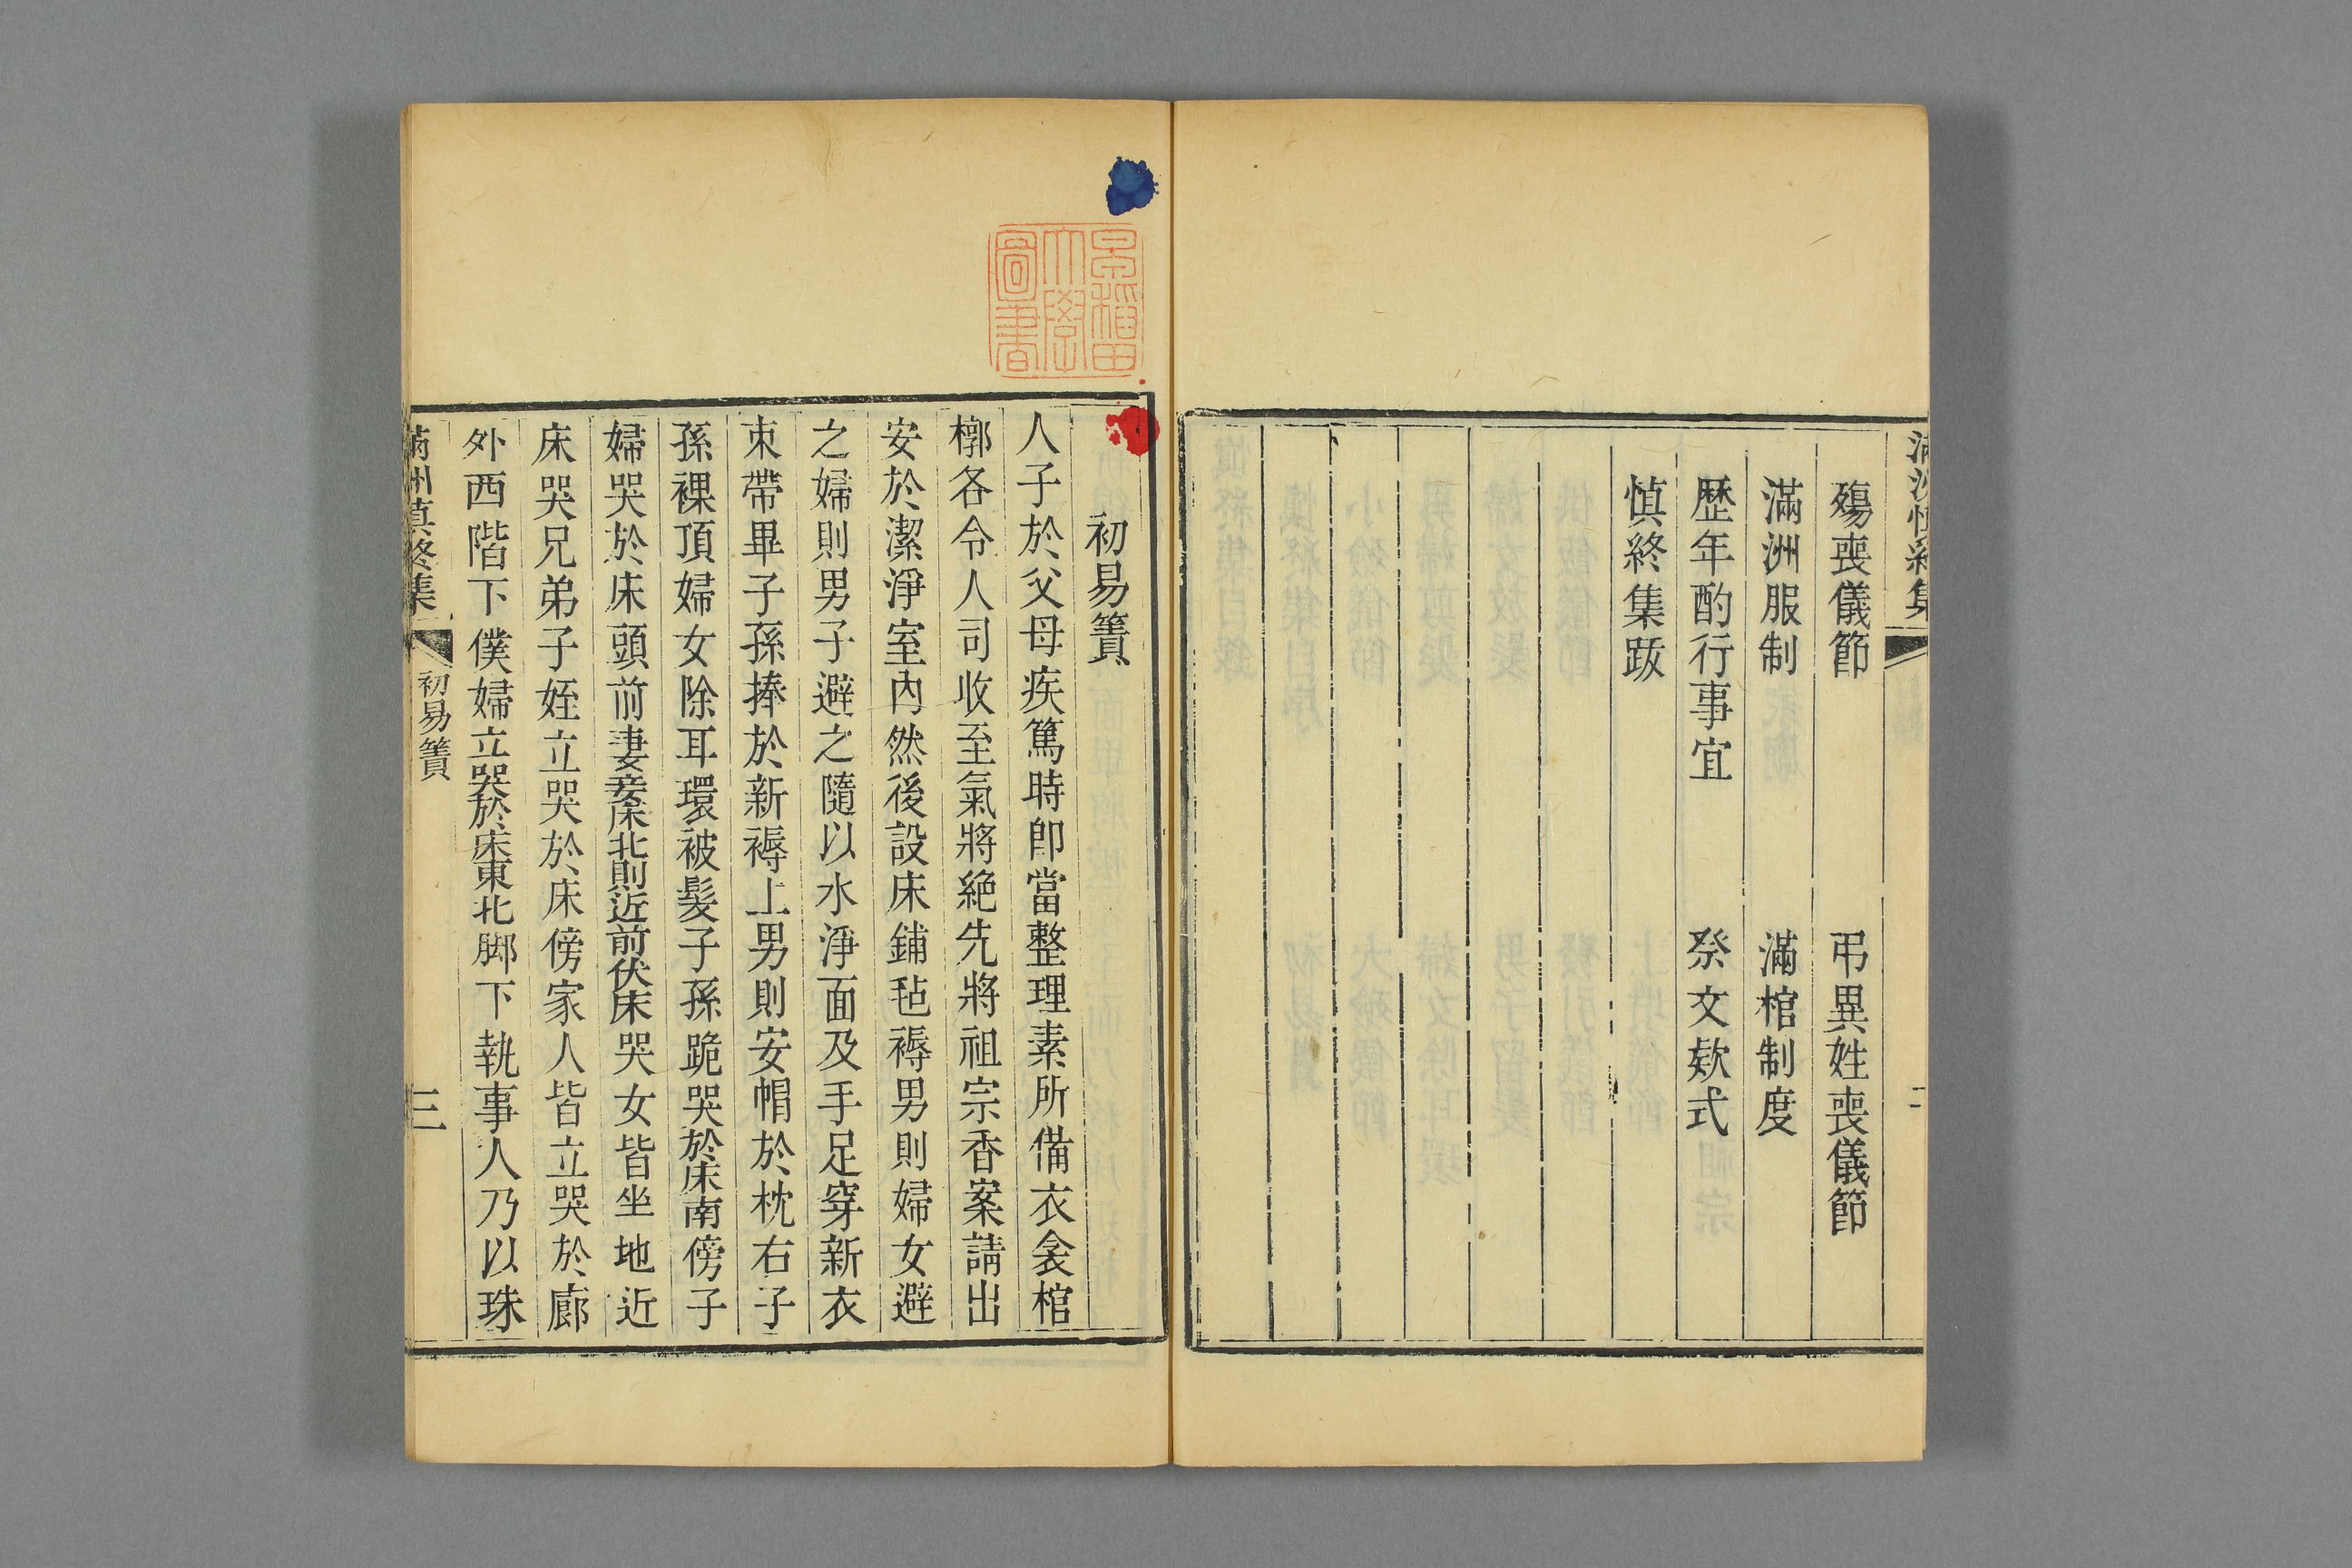 滿洲慎終集
二
殤喪儀節 弔異姓喪儀節
滿洲服制 滿棺制度
歷年酌行事宜 祭文欵式
慎終集跋
早稲田大學圖書
初易簀
人子於父母疾篤時即當整理素所備衣衾棺
槨各令人司收至氣將絕先將祖宗香案請出
安於潔淨室內然後設床鋪毡褥男則婦女避
之婦則男子避之隨以水淨面及手足穿新衣
束帶畢子孫捧於新褥上男則安帽於枕右子
孫裸頂婦女除耳環被髮子孫跪哭於床南傍子
婦哭於床頭前妻妾床北則近前伏床哭女皆坐地近
床哭兄弟子姪立哭於床傍家人皆立哭於廊
外西階下僕婦立哭於床東北脚下執事人乃以珠
滿洲慎終集
初易簀
三